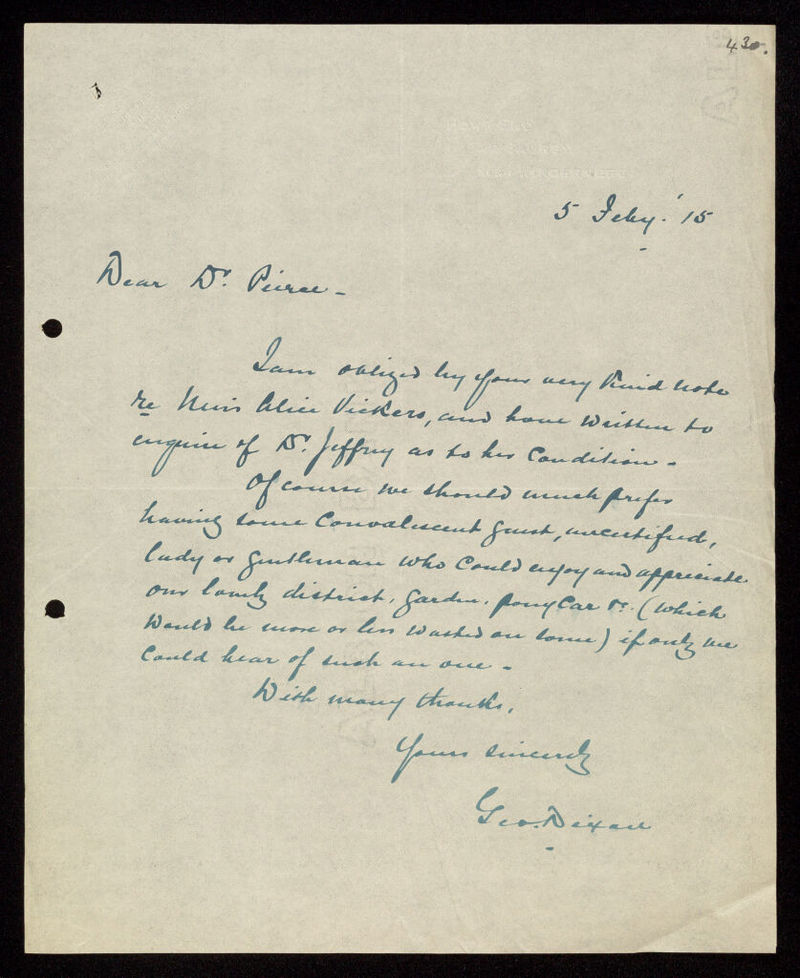 430.
5 Feby. '15
Dear Dr. Pierce -
I am obliged by your very kind note
re Miss Alice Vickers, and have written to
enquire of Dr. Jeffrey as to her condition -
Of course we should much prefer
having some Convalescent guest, uncertified,
lady or gentleman who could enjoy and appreciate
our lovely district, garden, pony car &c. (which
would be more or less wasted on some) if only we
could hear of such an one -
With many thanks,
Yours sincerely
Geo. Dixon